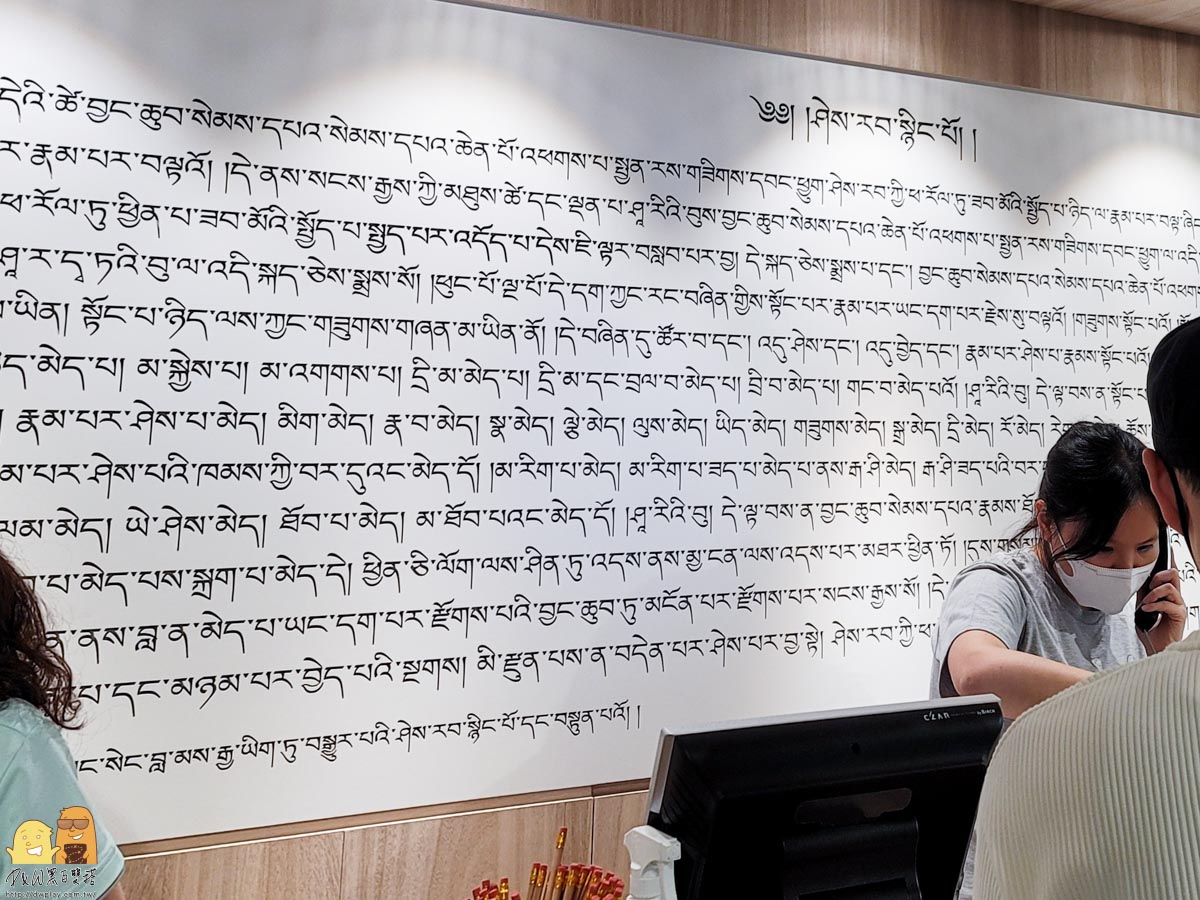 ༄༅། །ཤེས་རབ་སྙིང་པོ། །
དེའི་ཚེ་བྱང་ཆུབ་སེམས་དཔའ་སེམས་དཔའ་ཆེན་པོ་འཕགས་པ་སྤྱན་རས་གཟིགས་དབང་ཕྱུག་ཤེས་རབ་ཀྱི་ཕ་རོལ་ཏུ་ཟབ་མོའི་སྤྱོད་པ་ཉིད་ལ་རྣམ་པར་བལྟ་ཞིང
ར་རྣམ་པར་བལྟའོ། །དེ་ནས་སངས་རྒྱས་ཀྱི་མཐུས་ཚེ་དང་ལྡན་པ་ཤཱ་རིའི་བུས་བྱང་ཆུབ་སེམས་དཔའ་ཆེན་པོ་འཕགས་པ་སྤྱན་རས་གཟིགས་དབང་ཕྱུག་ལ་འདི
ཕ་རོལ་ཏུ་ཕྱིན་པ་ཟབ་མོའི་སྤྱོད་པ་སྤྱད་པར་འདོད་པ་དེས་ཇི་ལྟར་བསླབ་པར་བྱ། དེ་སྐད་ཅེས་སྨྲས་པ་དང་། བྱང་ཆུབ་སེམས་དཔའ་སེམས་དཔའ་ཆེན་པོ་འཕགས
ཤཱ་ར་དྭ་ཏའི་བུ་ལ་འདི་སྐད་ཅེས་སྨྲས་སོ། །ཕུང་པོ་ལྔ་པོ་དེ་དག་ཀྱང་རང་བཞིན་གྱིས་སྟོང་པར་རྣམ་པར་ཡང་དག་པར་རྗེས་སུ་བལྟའོ། །གཟུགས་སྟོང་པའོ།
ཡིན། སྟོང་པ་ཉིད་ལས་ཀྱང་གཟུགས་གཞན་མ་ཡིན་ནོ། །དེ་བཞིན་དུ་ཚོར་བ་དང་། འདུ་ཤེས་དང་། འདུ་བྱེད་དང་། རྣམ་པར་ཤེས་པ་རྣམས་སྟོང་པའོ།
མེད་པ། མ་སྐྱེས་པ། མ་འགགས་པ། དྲི་མ་མེད་པ། དྲི་མ་དང་བྲལ་བ་མེད་པ། བྲི་བ་མེད་པ། གང་བ་མེད་པའོ། །ཤཱ་རིའི་བུ། དེ་ལྟ་བས་ན་སྟོང་པ
རྣམ་པར་ཤེས་པ་མེད། མིག་མེད། རྣ་བ་མེད། སྣ་མེད། ལྕེ་མེད། ལུས་མེད། ཡིད་མེད། གཟུགས་མེད། སྒྲ་མེད། དྲི་མེད། རོ་མེད།
མ་པར་ཤེས་པའི་ཁམས་ཀྱི་བར་དུའང་མེད་དོ། །མ་རིག་པ་མེད། མ་རིག་པ་ཟད་པ་མེད་པ་ནས་རྒ་ཤི་མེད། རྒ་ཤི་ཟད་པའི་བར
ལམ་མེད། ཡེ་ཤེས་མེད། ཐོབ་པ་མེད། མ་ཐོབ་པའང་མེད་དོ། །ཤཱ་རིའི་བུ། དེ་ལྟ་བས་ན་བྱང་ཆུབ་སེམས་དཔའ་རྣམས་ཐོ
པ་མེད་པས་སྐྲག་པ་མེད་དེ། ཕྱིན་ཅི་ལོག་ལས་ཤིན་ཏུ་འདས་ནས་མྱ་ངན་ལས་འདས་པར་མཐར་ཕྱིན་ཏོ། །དུས་གསུམ
ན་ནས་བླ་ན་མེད་པ་ཡང་དག་པར་རྫོགས་པའི་བྱང་ཆུབ་ཏུ་མངོན་པར་རྫོགས་པར་སངས་རྒྱས་སོ། །དེ
པ་དང་མཉམ་པར་བྱེད་པའི་སྔགས། མི་རྫུན་པས་ན་བདེན་པར་ཤེས་པར་བྱ་སྟེ། ཤེས་རབ་ཀྱི་ཕ
ང་སེང་བླ་མས་རྒྱ་ཡིག་ཏུ་བསྒྱུར་པའི་ཤེས་རབ་སྙིང་པོ་དང་བསྟུན་པའོ། །
P&W黑白雙塔
http://dwplay.com.tw/